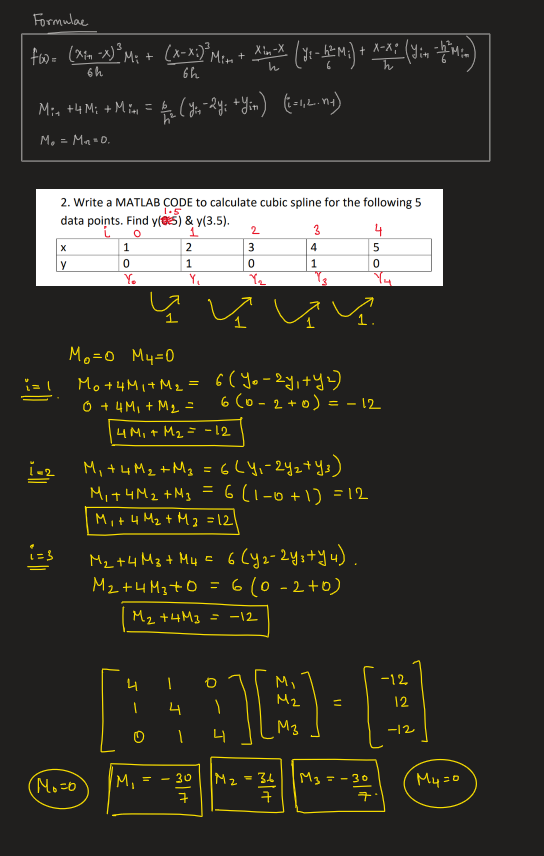 Formulae
f(x) = (x_{i+1} - x)^3/6h M_i + (x - x_i)^3/6h M_{i+1} + x_{i+1} - x/h (y_i - h^2/6 M_i) + x - x_i/h (y_{i+1} - h^2/6 M_{i+1})
M_{i-1} + 4M_i + M_{i+1} = 6/h^2 (y_{i-1} - 2y_i + y_{i+1}) (i = 1, 2.. n-1)
M_0 = M_n = 0.
2. Write a MATLAB CODE to calculate cubic spline for the following 5
1.5
data points. Find y( 5) & y(3.5).
i 0 1 2 3 4
x 1 2 3 4 5
y 0 1 0 1 0
Y_0 Y_1 Y_2 Y_3 Y_4
1 1 1 1.
M_0=0 M_4=0
i=1 M_0+4M_1+M_2 = 6(y_0-2y_1+y_2)
0 + 4M_1 + M_2 = 6(0-2+0) = -12
4M_1 + M_2 = -12
i=2 M_1+4M_2+M_3 = 6(y_1-2y_2+y_3)
M_1+4M_2+M_3 = 6(1-0+1) = 12
M_1+4M_2+M_3 = 12
i=3 M_2+4M_3+M_4 = 6(y_2-2y_3+y_4).
M_2+4M_3+0 = 6(0-2+0)
M_2+4M_3 = -12
4 1 0 M_1 -12
1 4 1 M_2 = 12
0 1 4 M_3 -12
M_0=0 M_1 = -30/7 M_2 = 36/7 M_3 = -30/7. M_4=0